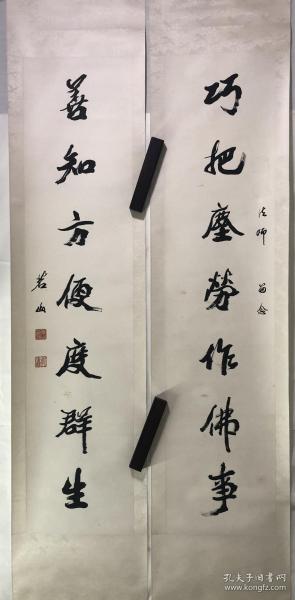 巧把塵勞作佛事
法师 留念
善知方便度群生
茗山
孔夫子旧书网